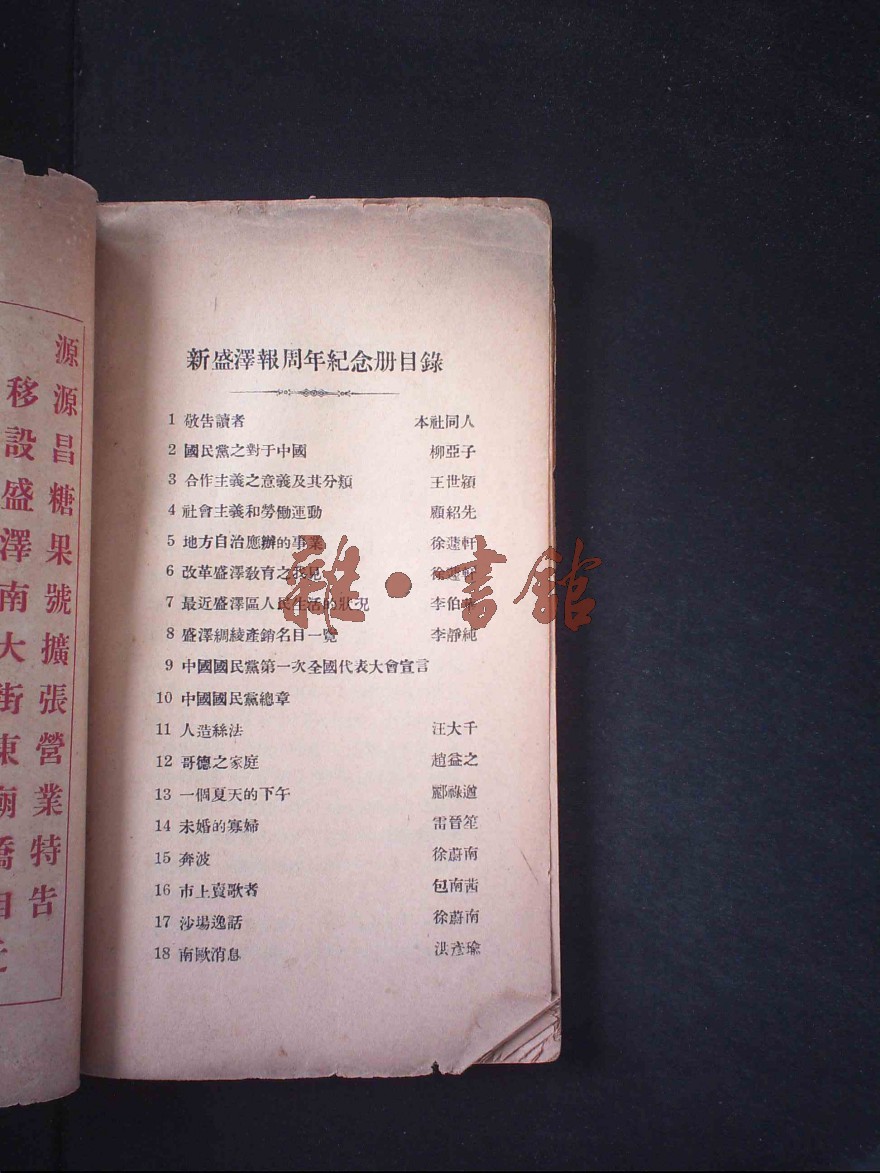 新盛澤報周年紀念册目錄
1 敬告讀者 本社同人
2 國民黨之對于中國 柳亞子
3 合作主義之意義及其分類 王世穎
4 社會主義和勞働運動 顧紹先
5 地方自治應辦的事業 徐蘧軒
6 改革盛澤教育之我見 徐蘧軒
7 最近盛澤區人民生活的狀况 李伯
8 盛澤綢綾產銷名目一覽 李靜純
9 中國國民黨第一次全國代表大會宣言
10 中國國民黨總章
11 人造絲法 汪大千
12 哥德之家庭 趙益之
13 一個夏天的下午 酈祿遒
14 未婚的寡婦 雷晉笙
15 奔波 徐蔚南
16 市上賣歌者 包南茜
17 沙場逸話 徐蔚南
18 南歐消息 洪彥瑜
源源昌糖果號擴張營業特告
移設盛澤南大街東廟橋
雅·書館